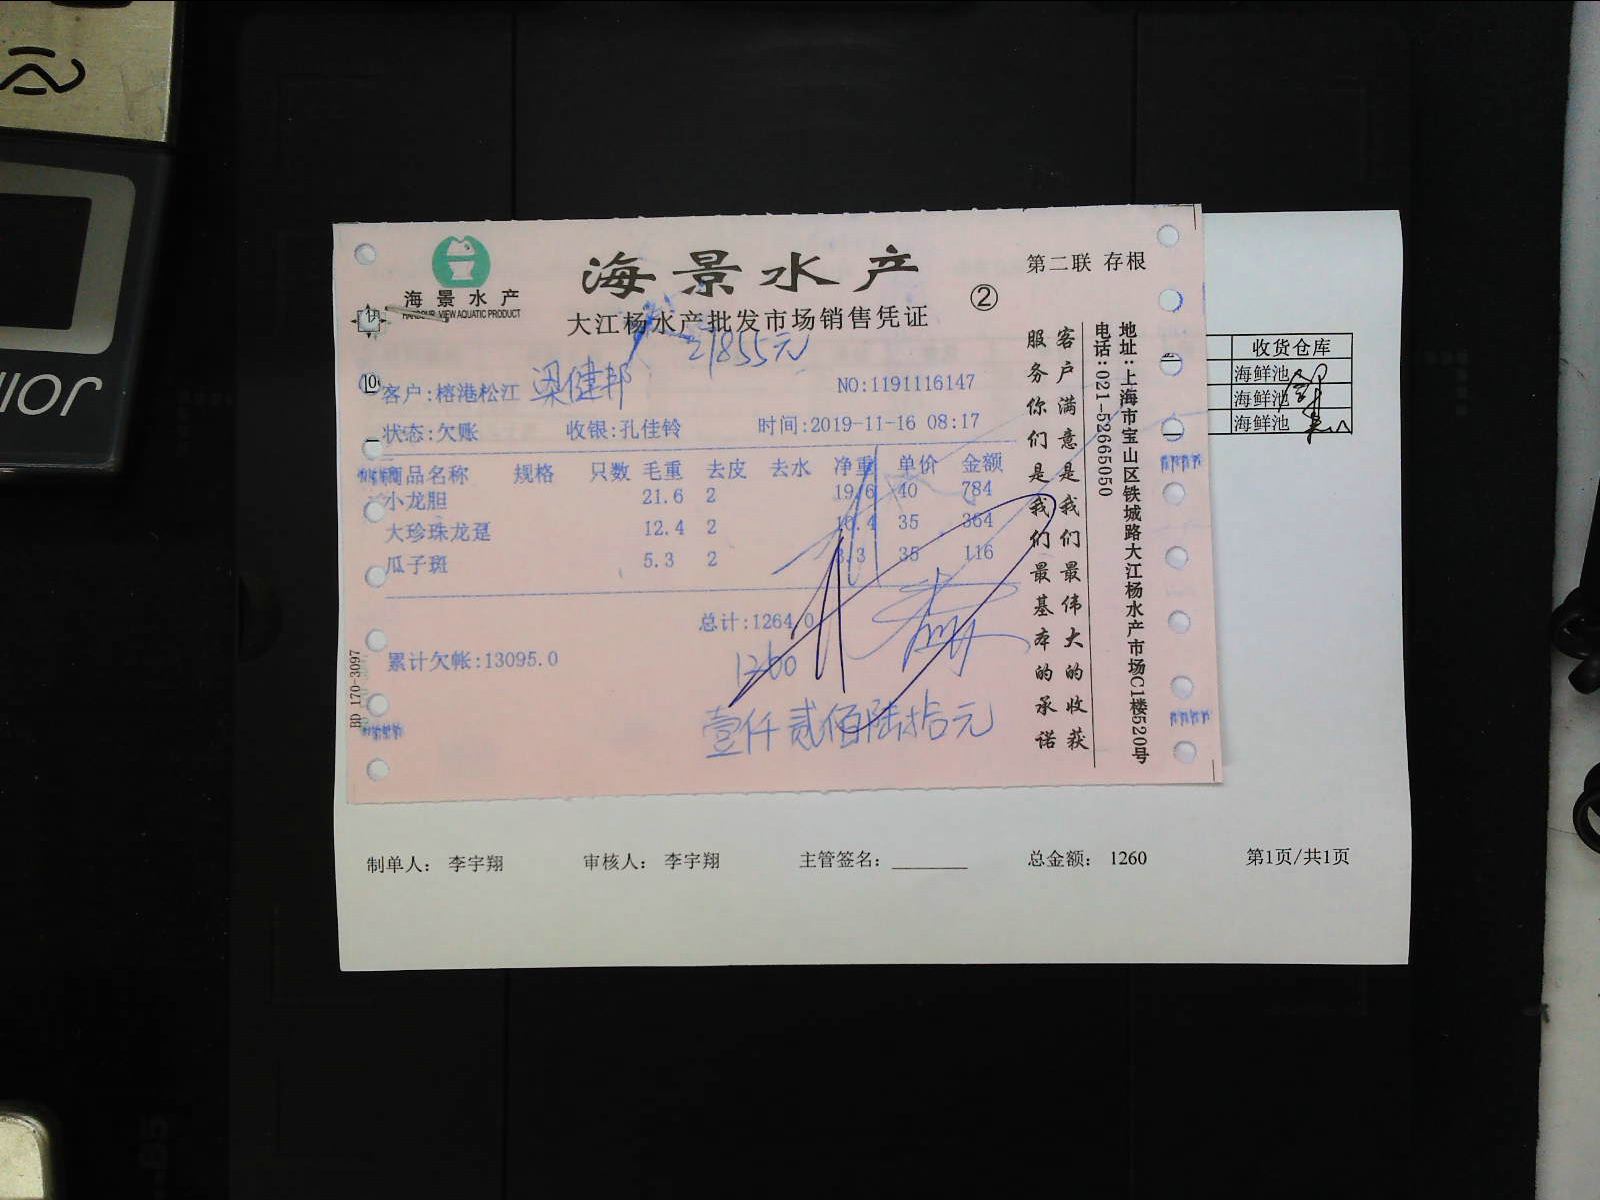 海景水产
HARBOUR VIEW AQUATIC PRODUCT
海景水产
大江杨水产批发市场销售凭证
②
第二联 存根
21855元
客户:榕港松江 梁健邦
NO:1191116147
状态:欠账 收银:孔佳铃 时间:2019-11-16 08:17
商品名称 规格 只数 毛重 去皮 去水 净重 单价 金额
小龙胆 21.6 2 19.6 40 784
大珍珠龙趸 12.4 2 10.4 35 364
瓜子斑 5.3 2 3.3 35 116
总计:1264.0
累计欠帐:13095.0
1260
壹仟贰佰陆拾元
客户满意是我们最伟大的收获
服务你们是我们最基本的承诺
地址:上海市宝山区铁城路大江杨水产市场C1楼520号
电话:021-52665050
HD 170-3097
收货仓库
海鲜池
海鲜池
海鲜池
制单人: 李宇翔 审核人: 李宇翔 主管签名: 总金额: 1260 第1页/共1页
JOIN